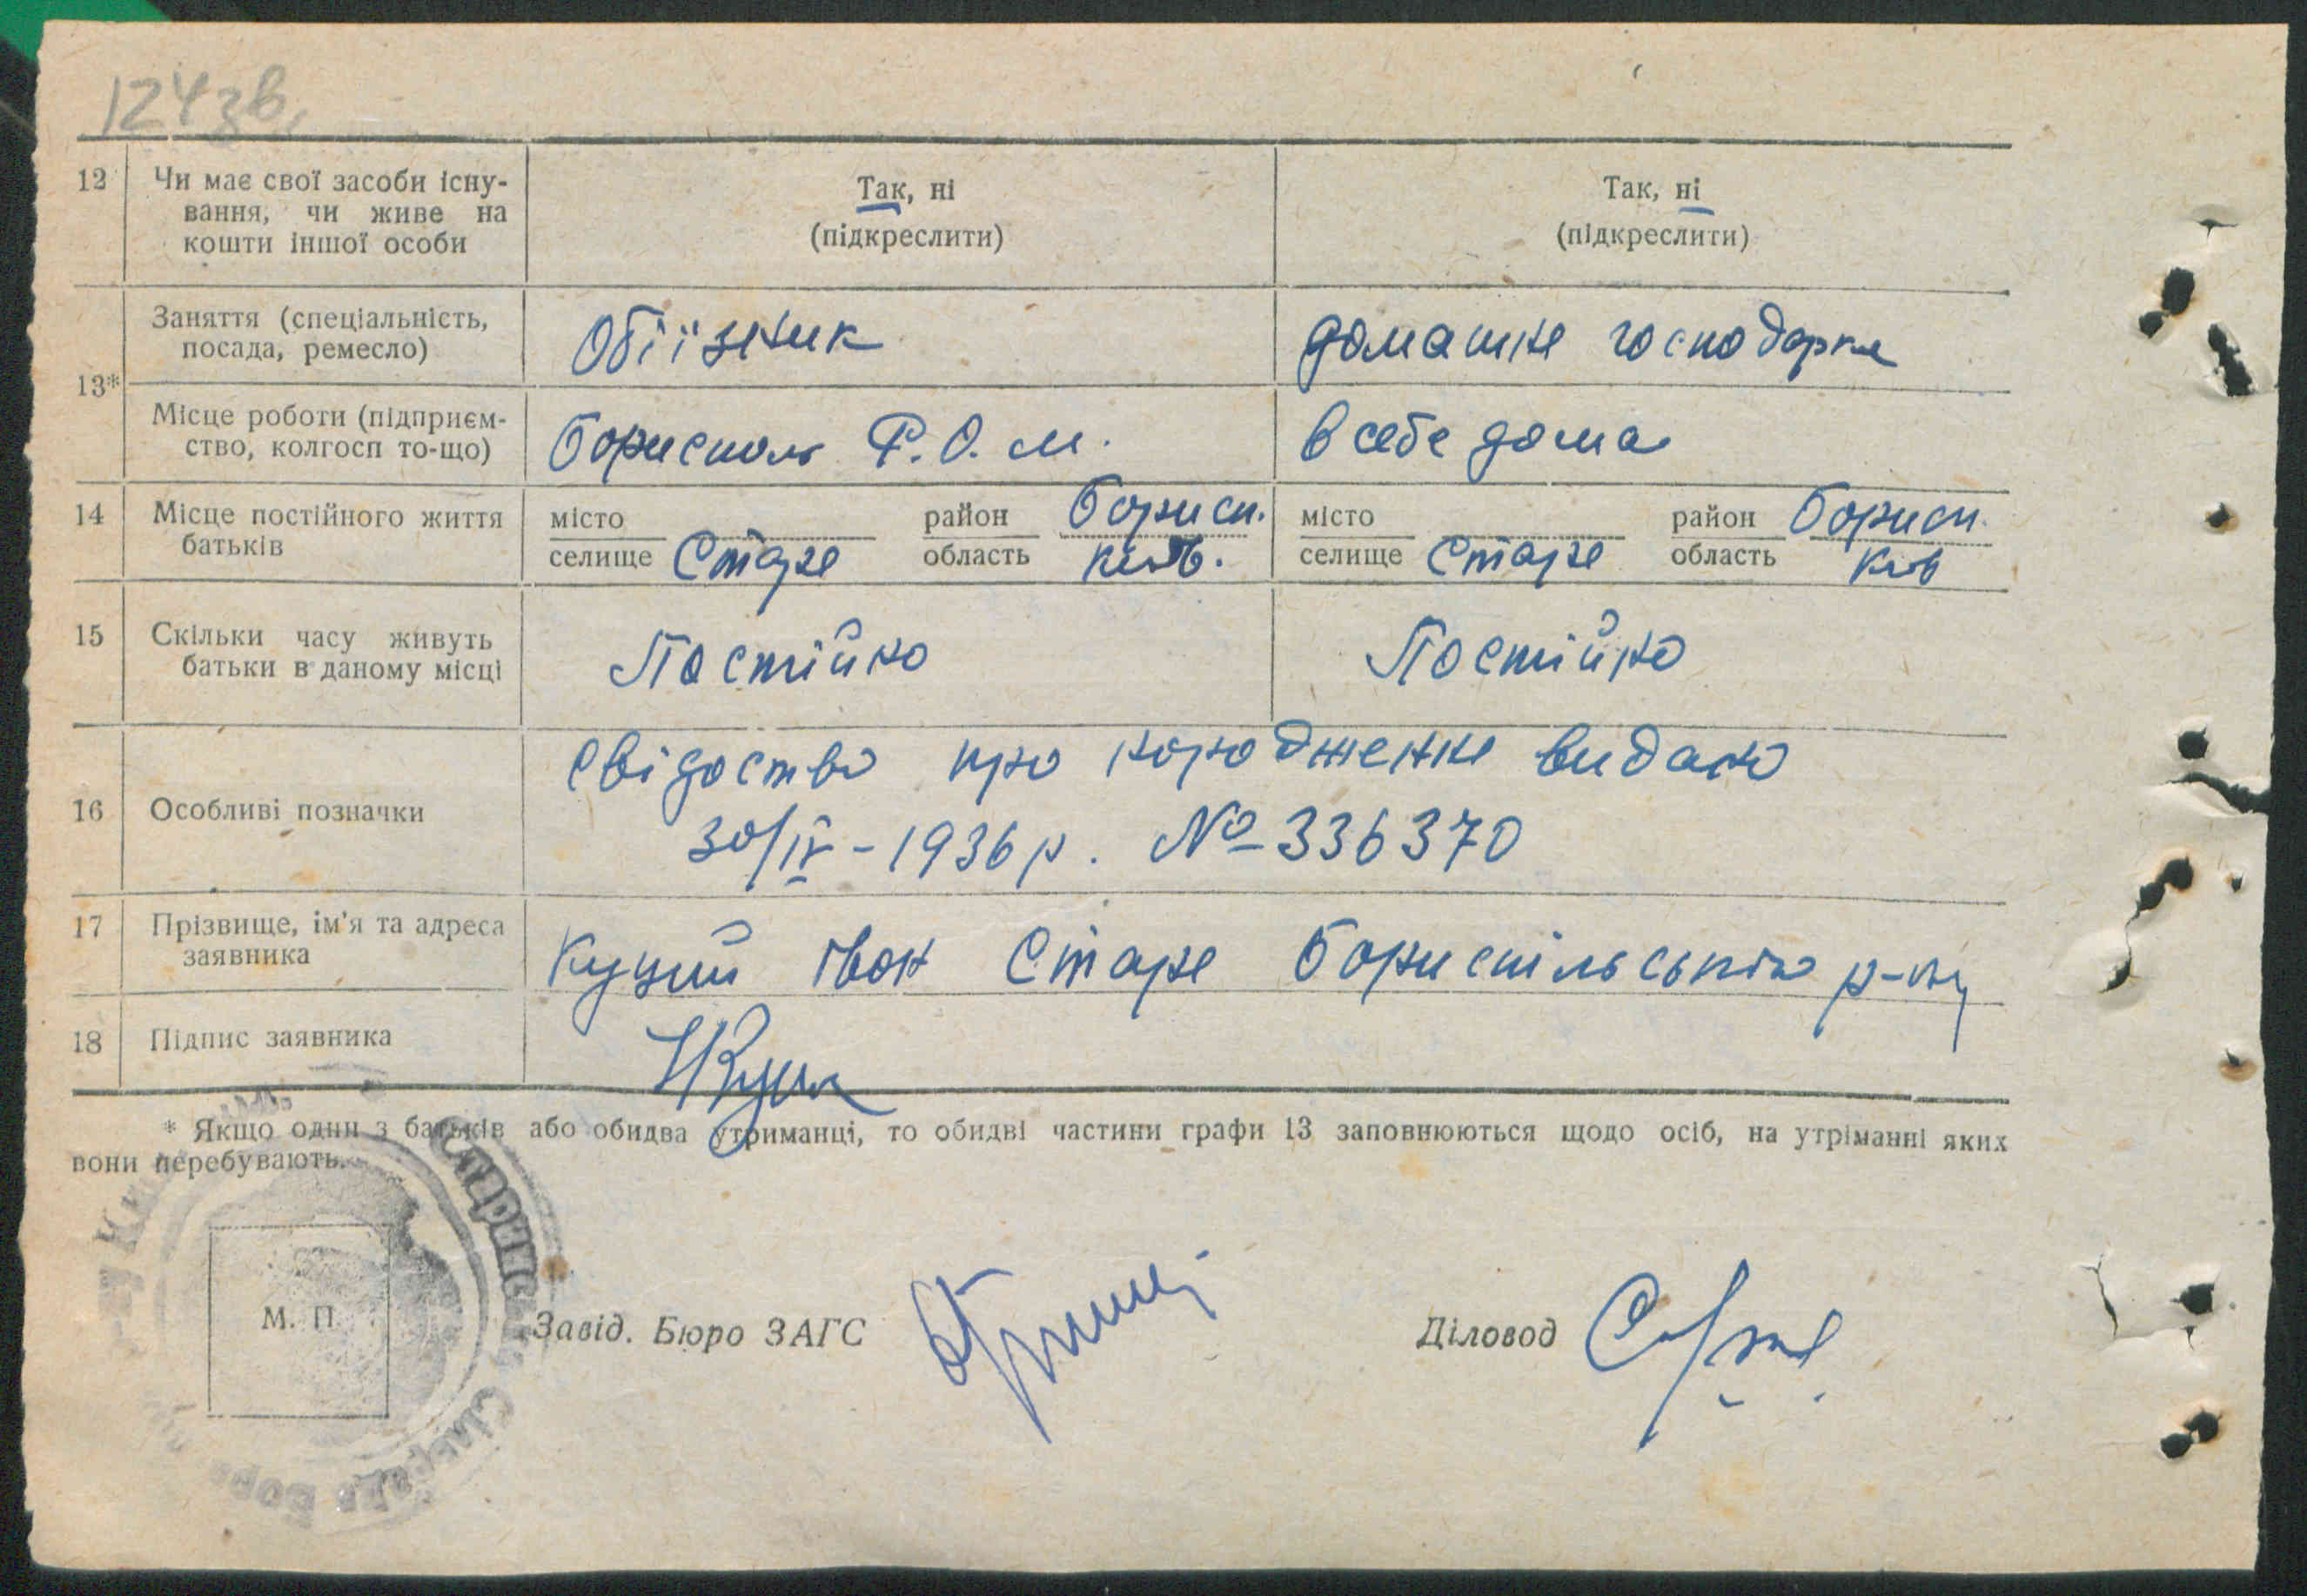 124зв.
12 Чи має свої засоби існу- Так, ні Так, ні
вання, чи живе на (підкреслити) (підкреслити)
кошти іншої особи
13* Заняття (спеціальність, Обіїзник домашне господарка
посада, ремесло)
Місце роботи (підприєм- Бориспол Р.О.М. в себе дома
ство, колгосп то-що)
14 Місце постійного життя місто район Борисп. місто район Борисп.
батьків селище Старе область Київ. селище Старе область Київ
15 Скільки часу живуть Постійно Постійно
батьки в даному місці
свідоство про народження видано
16 Особливі позначки
30/IV-1936 р. № 336370
17 Прізвище, ім'я та адреса
заявника Куций Іван Старе Бориспільського р-ну
18 Підпис заявника
* Якщо один з батьків або обидва утриманці, то обидві частини графи 13 заповнюються щодо осіб, на утріманні яких
вони перебувають.
М. П.
Завід. Бюро ЗАГС Діловод